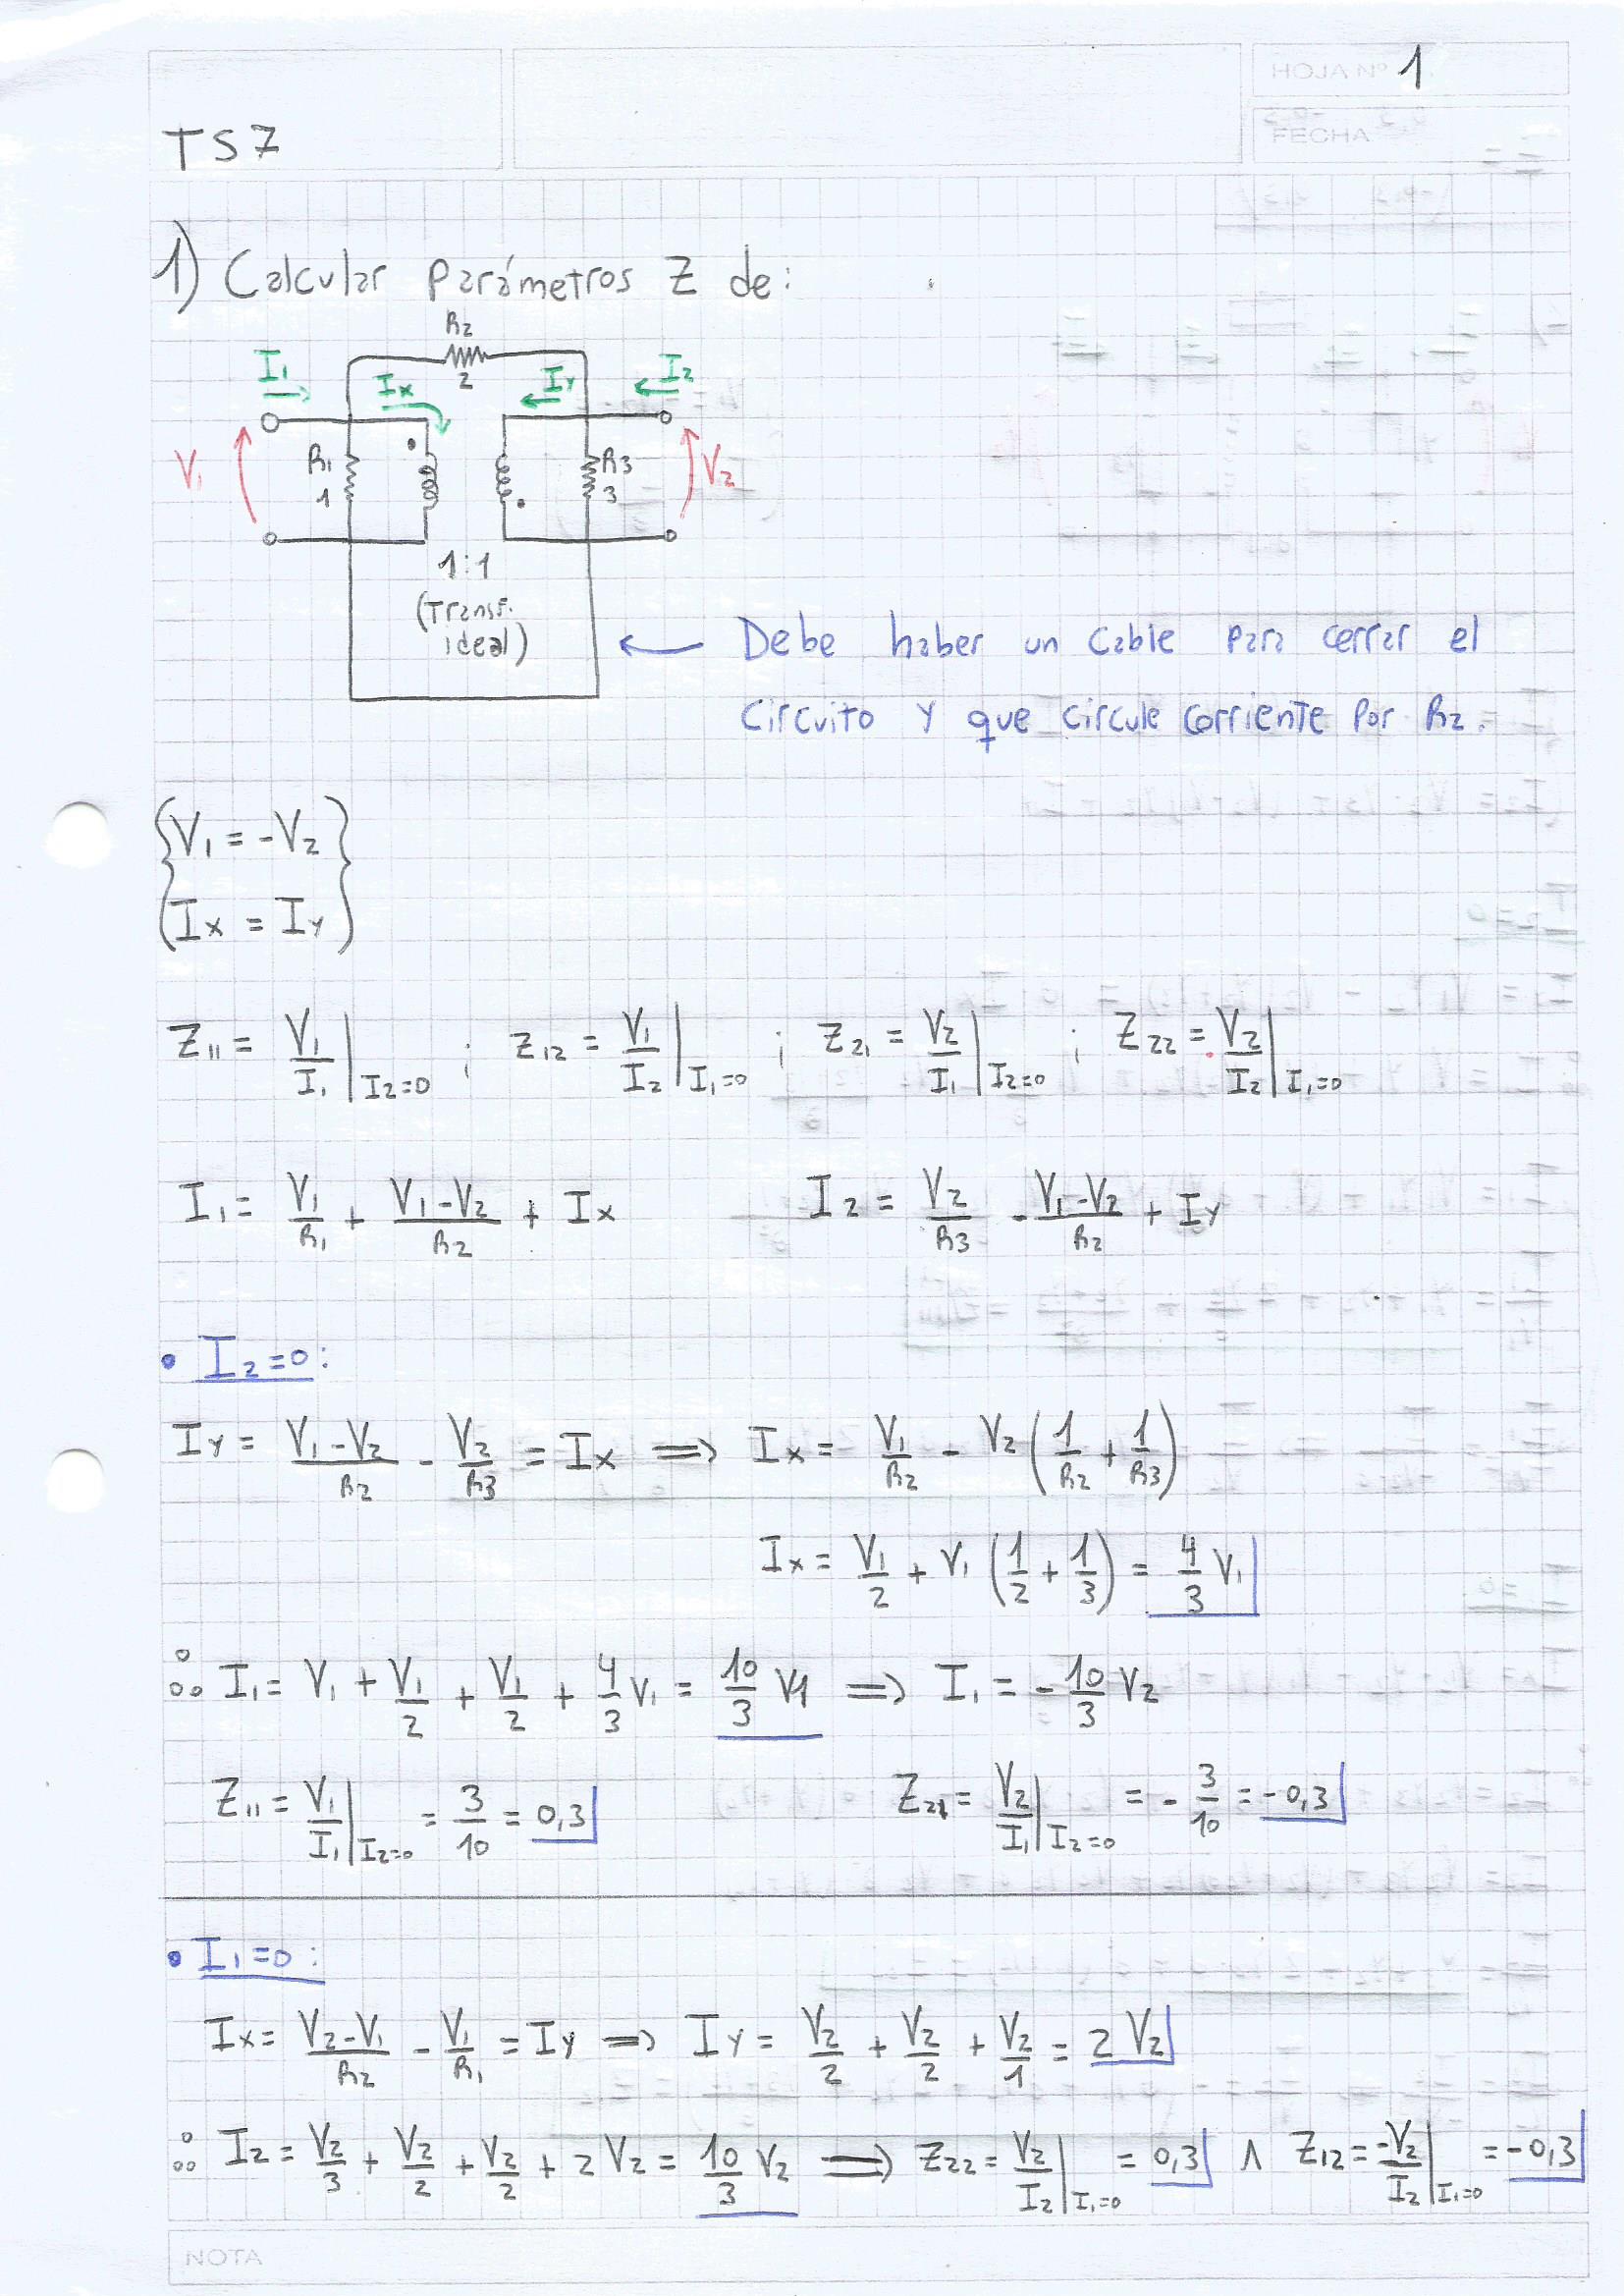 HOJA Nº 1
FECHA
TS7
1) Calcular Parámetros Z de:
R2
2
I1
Ix
Iy
I2
V1
R1
1
R3
3
V2
1:1
(Transf. ideal)
Debe haber un Cable para cerrar el
Circuito y que circule corriente por R2.
{V1 = -V2}
{Ix = Iy}
Z11 = V1/I1 |I2=0 ; Z12 = V1/I2 |I1=0 ; Z21 = V2/I1 |I2=0 ; Z22 = V2/I2 |I1=0
I1 = V1/R1 + (V1-V2)/R2 + Ix    I2 = V2/R3 - (V1-V2)/R2 + Iy
• I2=0:
Iy = (V1-V2)/R2 - V2/R3 = Ix ⟹ Ix = V1/R2 - V2 (1/R2 + 1/R3)
Ix = V1/2 + V1 (1/2 + 1/3) = 4/3 V1
∴ I1 = V1 + V1/2 + V1/2 + 4/3 V1 = 10/3 V1 ⟹ I1 = -10/3 V2
Z11 = V1/I1 |I2=0 = 3/10 = 0,3    Z21 = V2/I1 |I2=0 = -3/10 = -0,3
• I1=0:
Ix = (V2-V1)/R2 - V1/R1 = Iy ⟹ Iy = V2/2 + V2/2 + V2/1 = 2 V2
∴ I2 = V2/3 + V2/2 + V2/2 + 2 V2 = 10/3 V2 ⟹ Z22 = V2/I2 |I1=0 = 0,3 ∧ Z12 = -V2/I2 |I1=0 = -0,3
NOTA